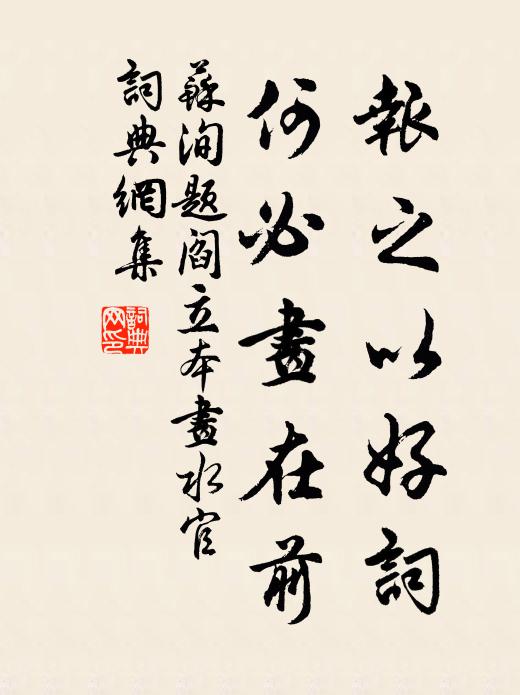 報之以好詞
何必畫在前
蘇洵題閻立本畫水官
詞典網集
詞典网印